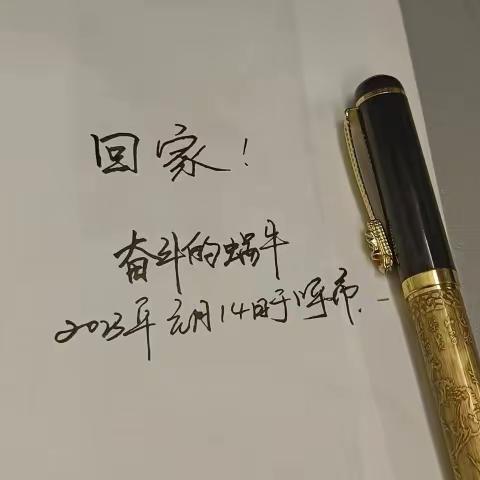 回家！
奋斗的蜗牛
2023年元月14日于呼市.